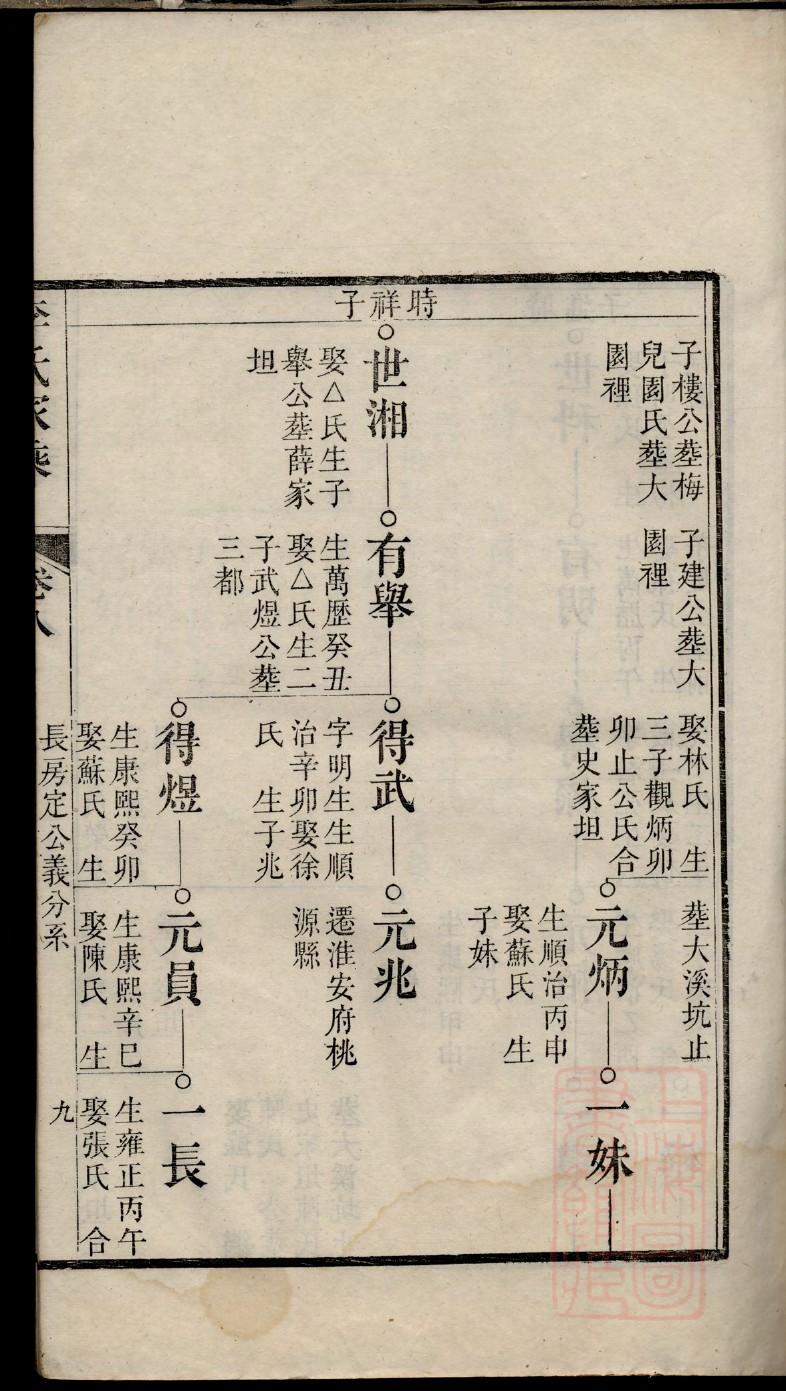 時祥子
子樓公塟梅
兒園氏塟大
園裡
子建公塟大
園裡
娶林氏 生
三子觀炳卯
卯止公氏合
塟史家坦
塟大溪坑止
元炳
生順治丙申
娶蘇氏 生
子妹
一妹
世湘
娶△氏生子
舉公塟薛家
坦
有舉
生萬歷癸丑
娶△氏生二
子武煜公塟
三都
得武
字明生生順
治辛卯娶徐
氏 生子兆
元兆
遷淮安府桃
源縣
得煜
生康熙癸卯
娶蘇氏 生
元員
生康熙辛巳
娶陳氏 生
一長
生雍正丙午
娶張氏 合
李氏家乘
卷八
長房定公義分系
九